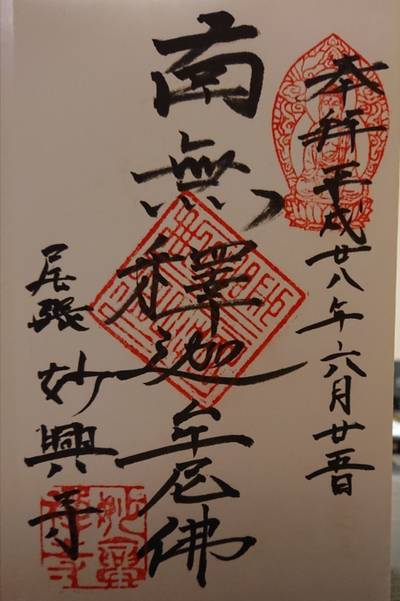 奉拝 平成廿八年六月廿五日
南無釋迦牟尼佛
尾張 妙興寺